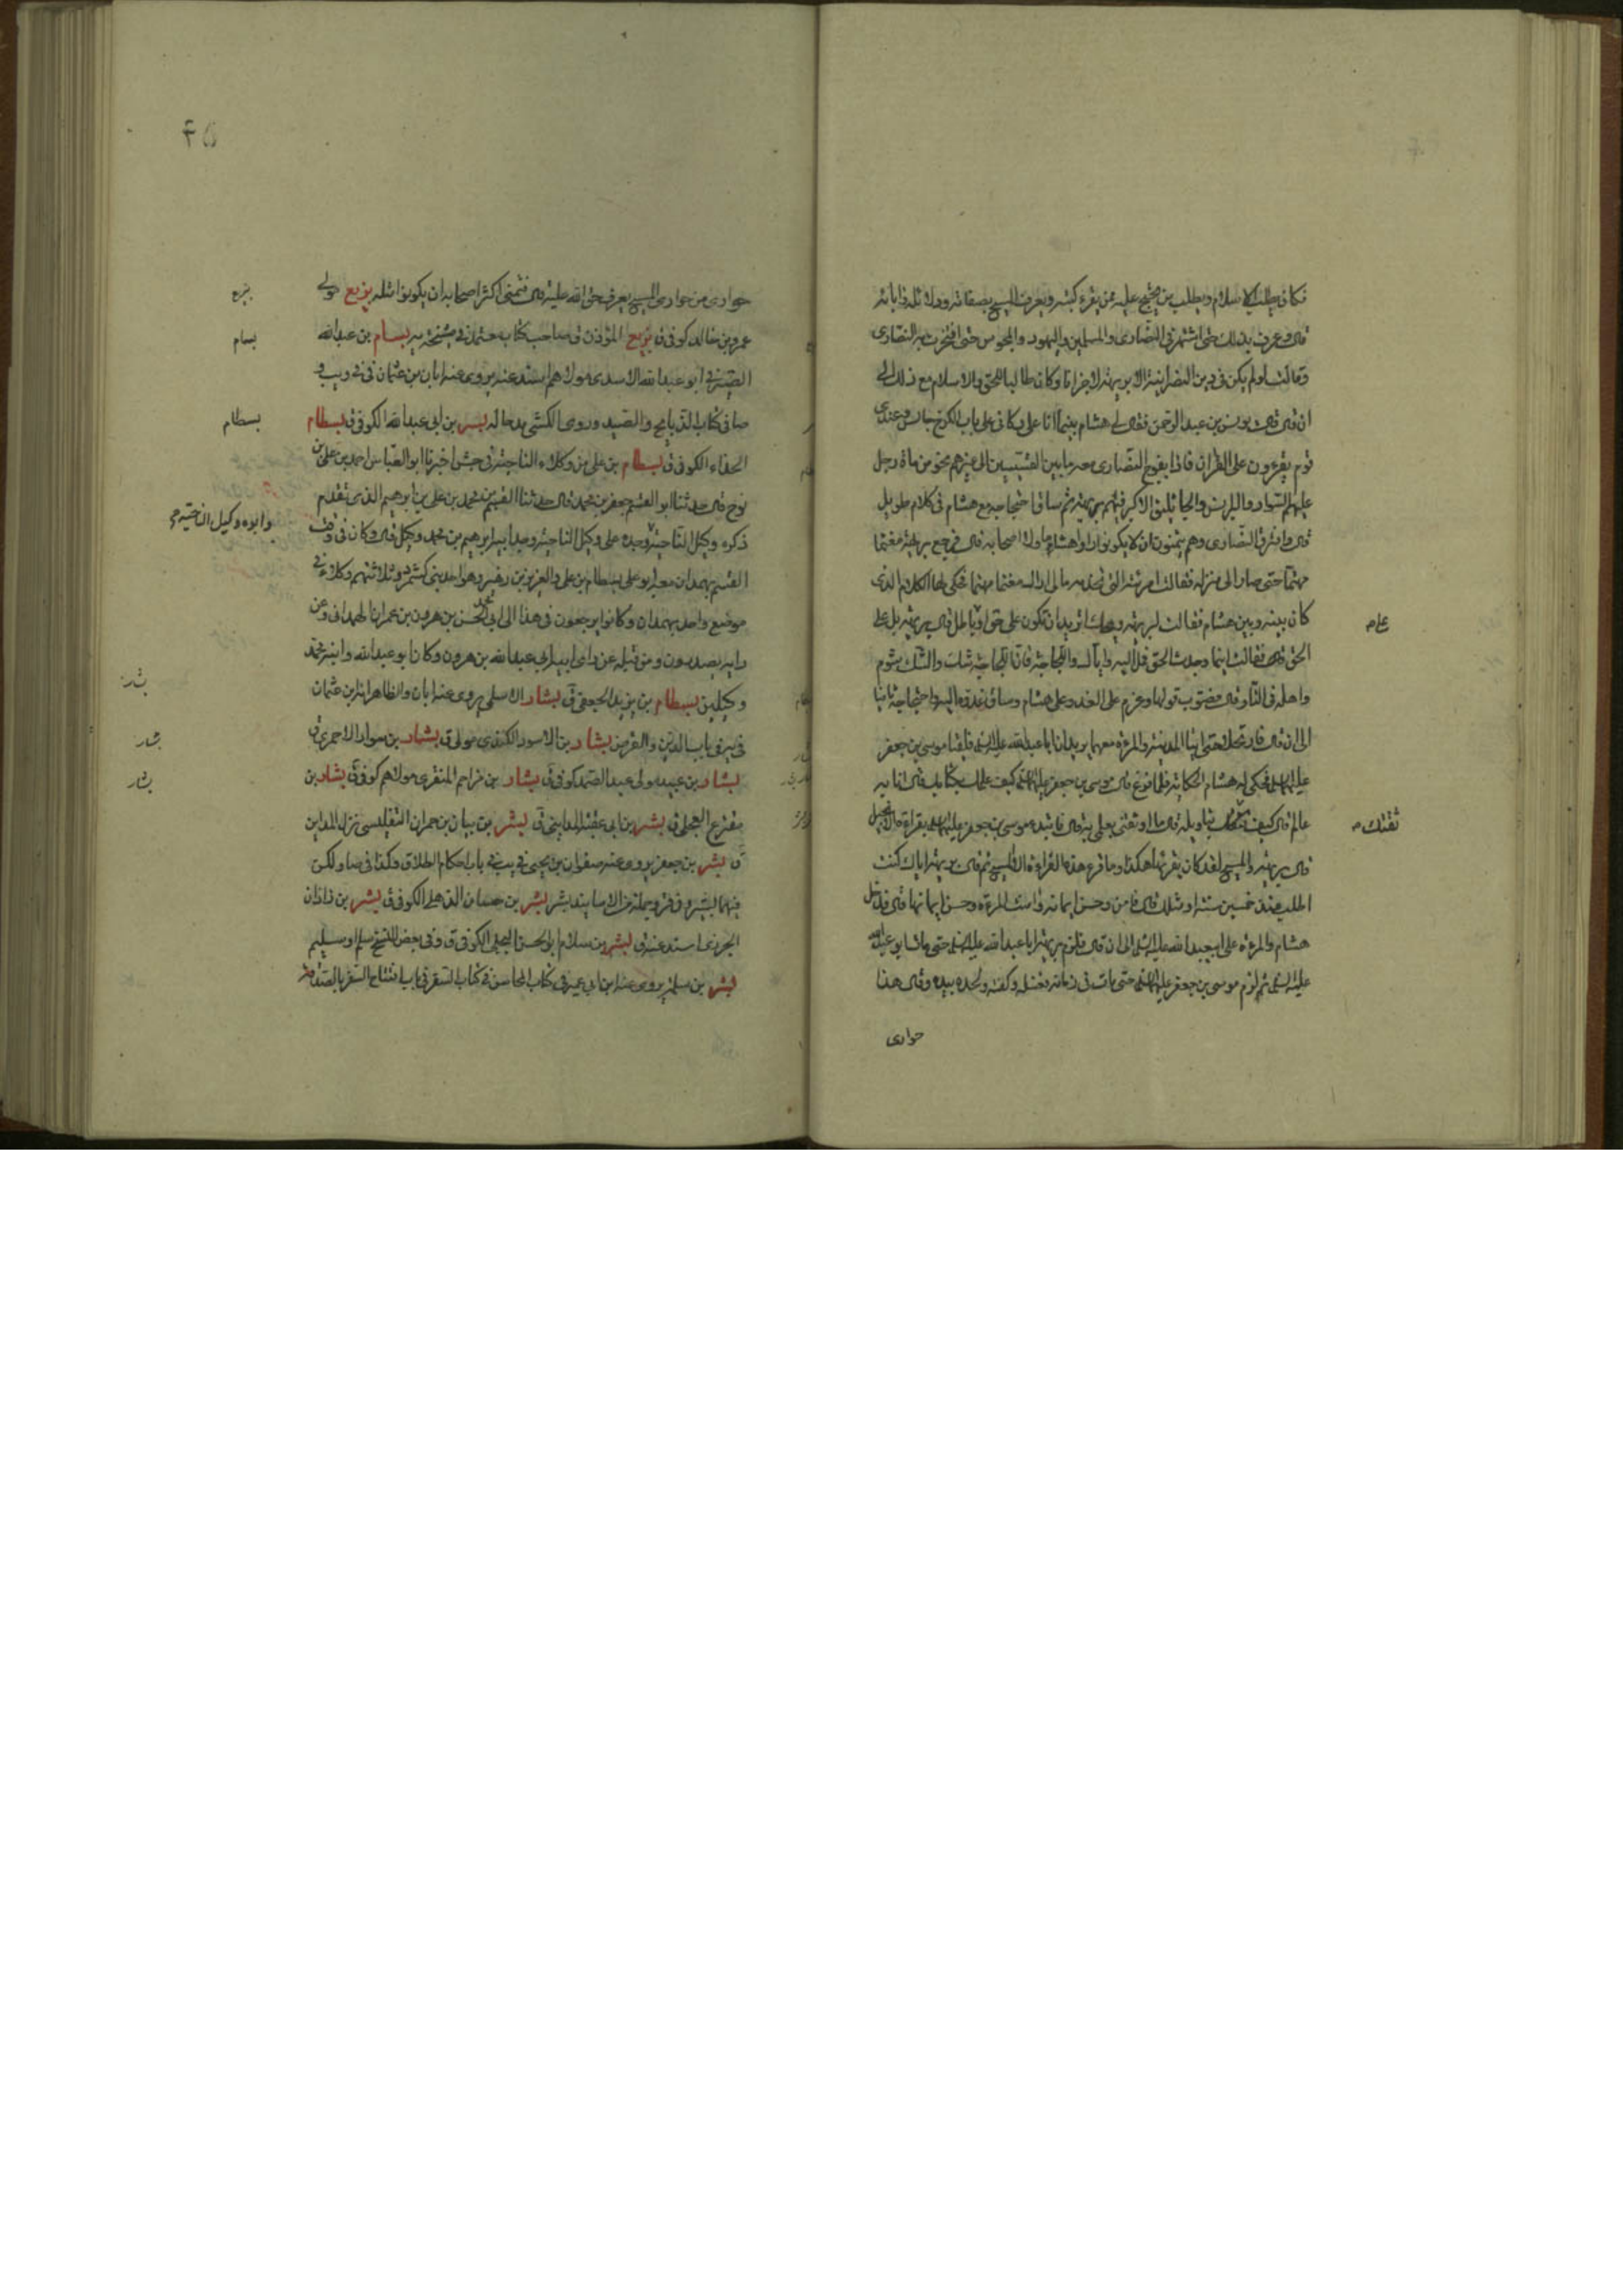 فكان يطلب الاسلام ويطلب من يحتج عليه ممن يقرء كتبه ويعرف المسيح بصفاته ودلائله وآياته
قال وعرف بذلك حتى اشتهر فى النصارى والمسلمين واليهود والمجوس حتى افتخرت به النصارى
وقالت لو لم يكن فى دين النصرانية الا بريهة لاجزانا وكان طالبا للحق والاسلام مع ذلك الى
ان قال قال يونس بن عبد الرحمن فقال لى هشام بينما انا على دكانى على باب الكرخ جالس وعندى
قوم يقرءون على القران فاذا بفوج النصارى معه ما بين القسيسين الى غيرهم نحو من مائة رجل
عليهم السواد والبرانس والجاثليق الاكبر فيهم بريهة ثم ساق احتجاجه مع هشام فى كلام طويل
قال وافترق النصارى وهم يتمنون ان لا يكونوا راوا هشاما ولا اصحابه قال فرجع بريهة مغتما
مهتما حتى صار الى منزله فقالت امرئته التى تخدمه مالى اراك مغتما مهتما فحكى لها الكلام الذى
كان بينه وبين هشام فقالت لبريهة ويحك اتريد ان تكون على حق او باطل قال بريهة بل على
الحق قال فقالت اينما وجدت الحق فمل اليه واياك واللجاجة فان اللجاجة شك والشك شوم
واهله فى النار قال فصوب قولها وعزم على الغدو على هشام وساق غدوه اليه واحتجاجه ثانيا
الى ان قال فارتحلا حتى اتيا المدينة والمرءة معهما يريدان ابا عبد الله عليه السلم فلقيا موسى بن جعفر
عليهما السلم فحكى له هشام الحكاية فلما فرغ قال موسى بن جعفر عليهما السلم كيف علمك بكتابك قال انا به
عالم قال كيف ثقتك بتاويله قال ما اوثقنى بعلمى به قال فابتدء موسى بن جعفر عليهما السلم بقراءة الانجيل
قال بريهة والمسيح لقد كان يقرئها هكذا وما قرء هذه القراءة الا المسيح ثم قال بريهة اياك كنت
اطلب منذ خمسين سنة او مثلك قال فامن وحسن ايمانه وامنت المرءة وحسن ايمانها قال فدخل
هشام والمرءة على ابيعبد الله عليه السلم الى ان قال فلزم بريهة ابا عبد الله عليه السلم حتى مات ابو عبد الله
عليه السلم ثم لزم موسى بن جعفر عليهما السلم حتى مات فى زمانه فغسله وكفنه ولحده بيده وقال هذا
حوارى
علم
ثقتك
حوارى من حوارى المسيح يعرف حق الله عليه قال فتمنى اكثر اصحابه ان يكونوا مثله بزيع مولى
عمرو بن خالد كوفى ق بزيع المؤذن ق صاحب كتاب عنه فى مشيخة يه بسام بن عبد الله
الصيرفى ابو عبد الله الاسدى مولاهم اسند عنه يروى عنه ابان بن عثمان فى فى ويب و
صا فى كتاب الذبايح والصيد وروى الكشى مدحا له بسر بن ابى عبد الله الكوفى ق بسطام
الحذاء الكوفى ق بسطام بن على من وكلاء الناحية فى جش اخبرنا ابو العباس احمد بن على بن
نوح قال حدثنا ابو القسم جعفر بن محمد قال حدثنا القسم بن محمد بن على بن ابرهيم الذى تقدم
ذكره وكيل الناحية وجده على وكيل الناحية وجد ابيه ابرهيم بن محمد وكيل قال وكان فى وقت
القسم بهمدان معه ابو على بسطام بن على والعزيز بن زهير وهو احد بنى كشمرد وثلاثتهم وكلاء فى
موضع واحد بهمدان وكانوا يرجعون فى هذا الى ابى محمد الحسن بن هرون بن عمران الهمدانى وعن
رايه يصدرون ومن قبله عن راى ابيه ابى عبد الله بن هرون وكان ابو عبد الله وابنه محمد
وكيلين بسطام بن يزيد الجعفى ق بشار الاسلمى يروى عنه ابان والظاهر انه ابن عثمان
فى يه فى باب الدين والقرض بشار بن الاسود الكندى مولى ق بشار بن سوار الاحمرى ق
بشار بن عبيد مولى عبد الصمد كوفى ق بشار بن مزاحم المنقرى مولاهم كوفى ق بشار بن
مقترع العجلى ق بشر بن ابى عقبة المداينى ق بشر بن بيان بن حمران التفليسى نزل المداين
ق بشر بن جعفر يروى عنه صفوان بن يحيى فى يب فى باب احكام الطلاق وكذا فى صا ولكن
بشر بن حسان الذهلى الكوفى ق بشر بن زاذان
الجزرى اسند عنه ق بشر بن سلام ابو الحسن البجلى الكوفى ق وفى بعض النسخ سلم او سليم
بشر بن سلمة يروى عنه ابن ابى عمير فى كتاب المحاسن فى كتاب السفر فى باب افتتاح السفر بالصدقة
بزيع
بسام
بسطام
وابوه وكيل الناحية
بشار
بشار
بشار